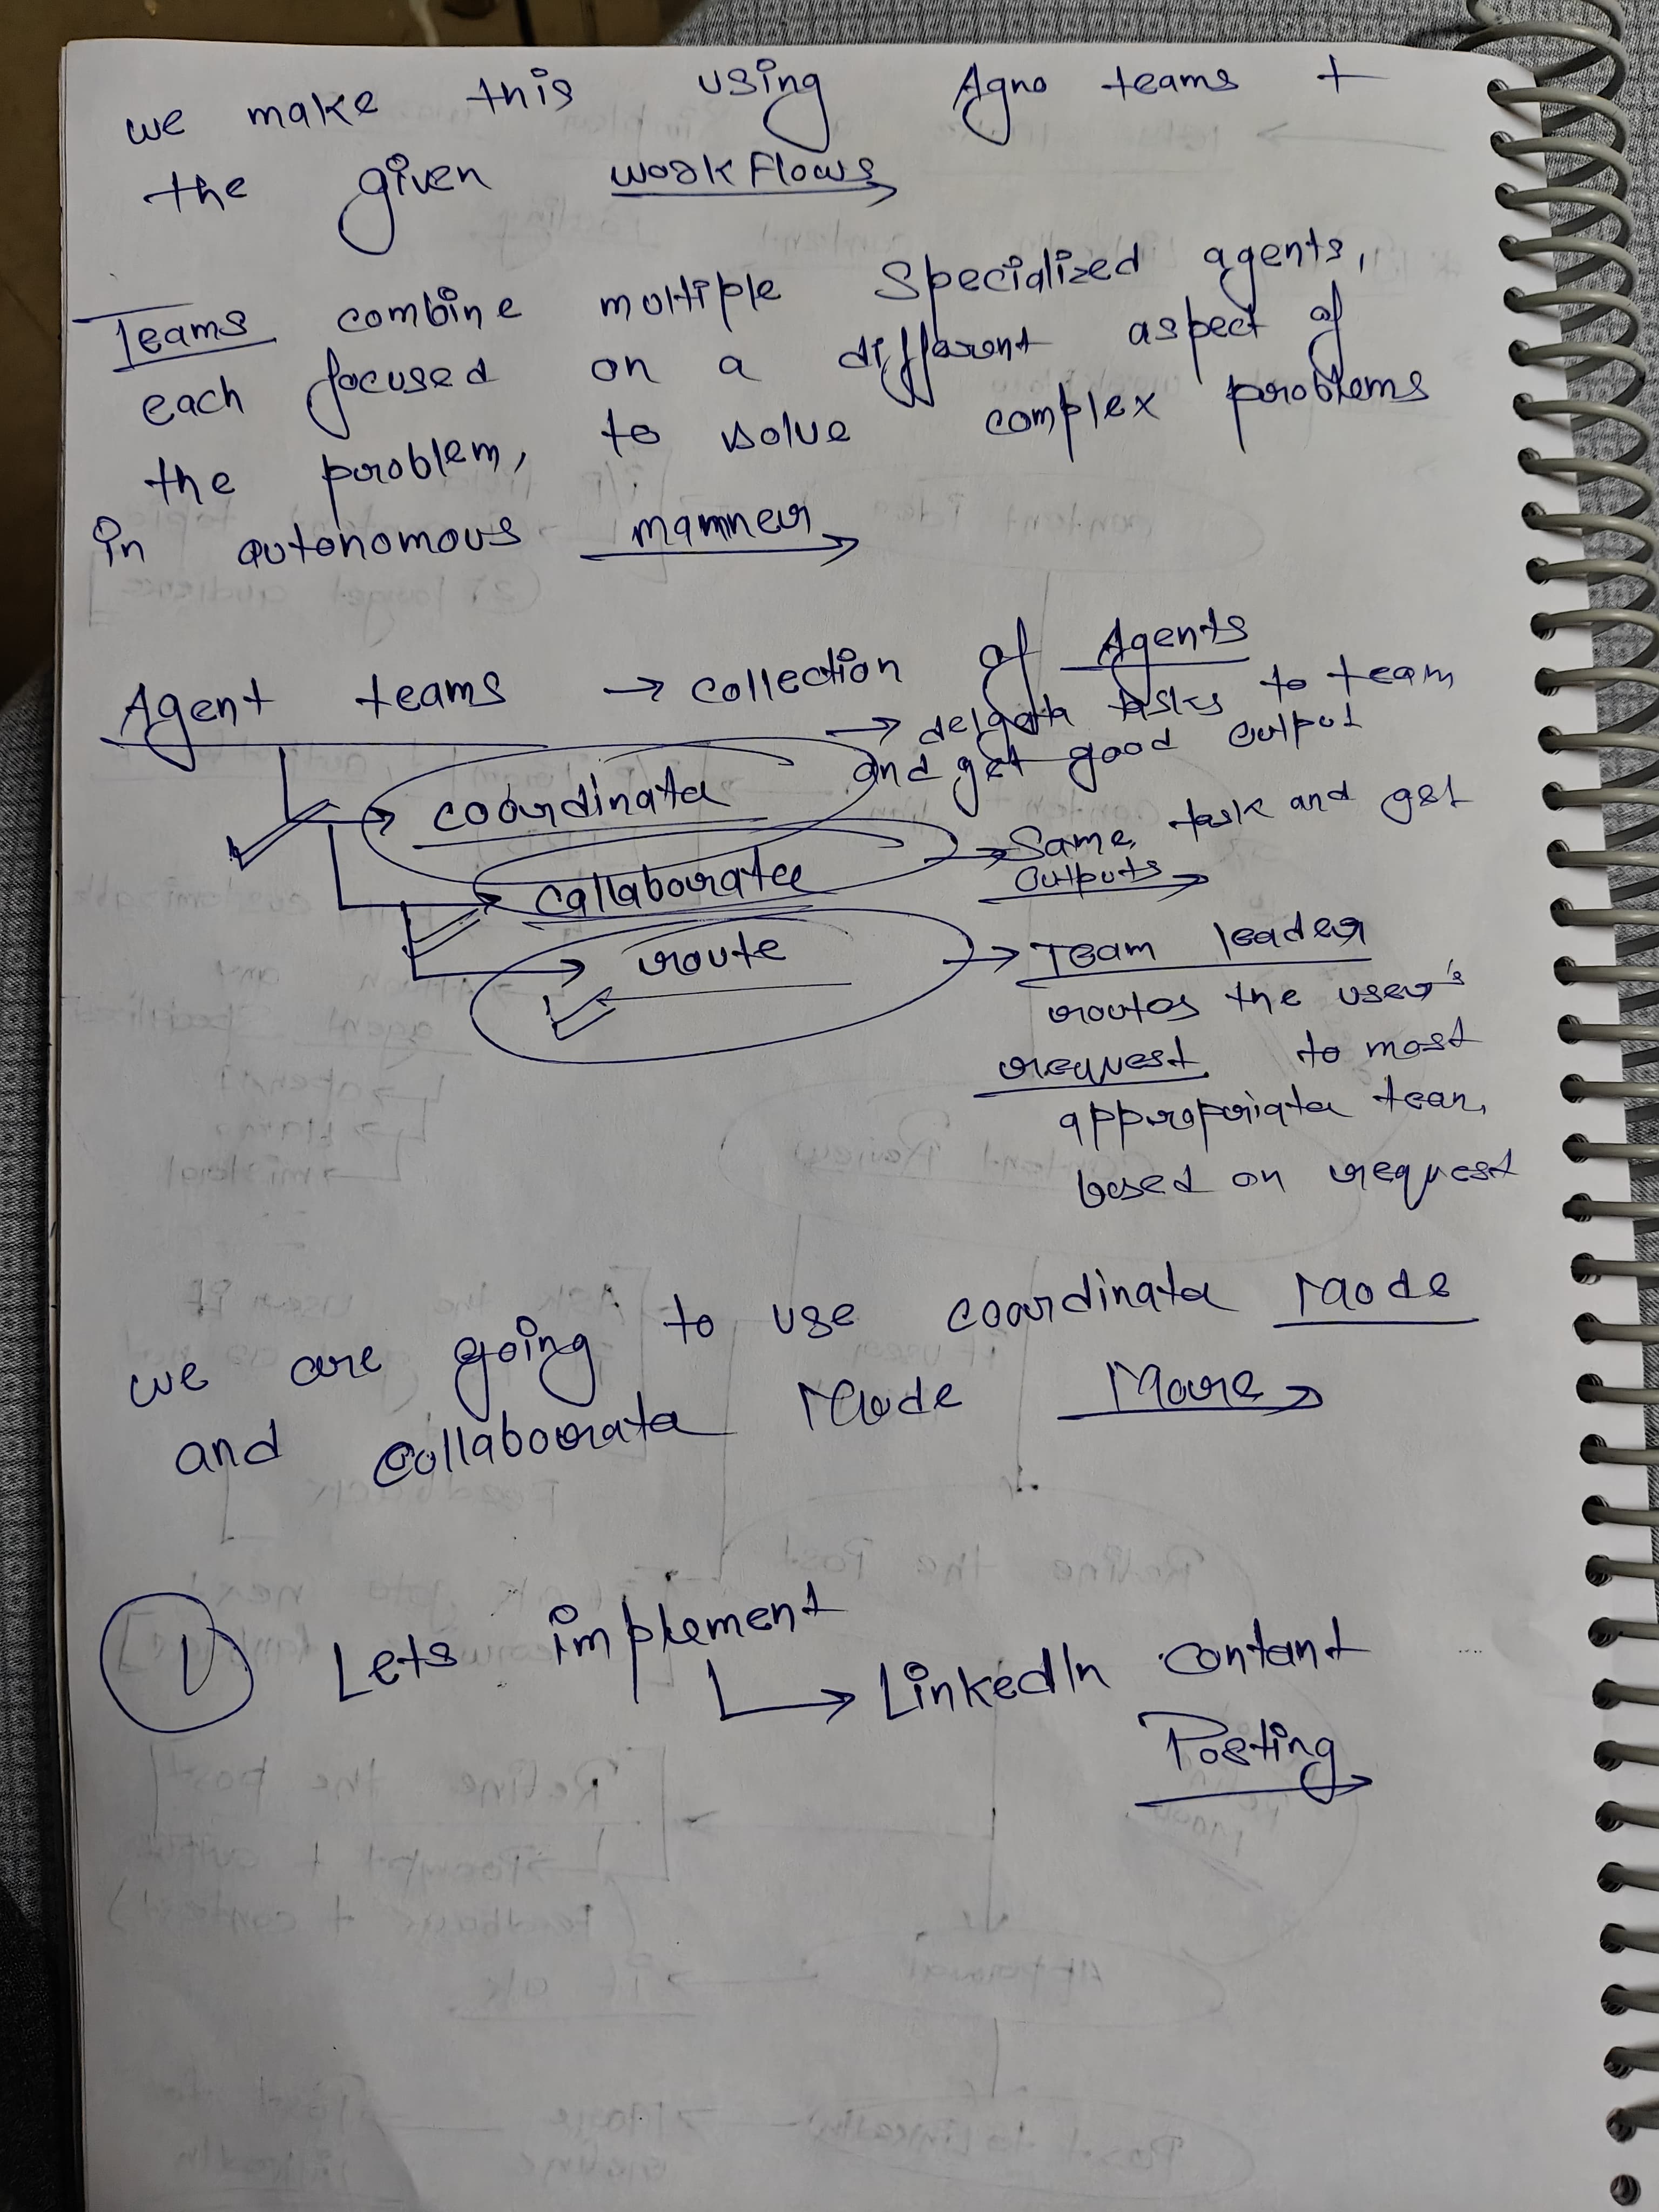 we make this using Agno teams +
the given workflows
Teams combine multiple specialized agents,
each focused on a different aspect of
the problem, to solve complex problems
in autonomous manner
Agent teams → collection of Agents
→ delgate tasks to team
and get good output
coordinate
collaborate → Same task and get
outputs
route → Team leader
routes the user's
request to most
appropriate team,
based on request
we are going to use coordinate Mode
and collaborate Mode More
1 Lets implement
→ LinkedIn content
Posting